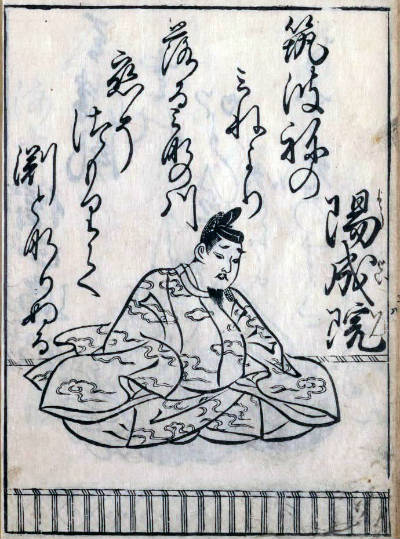 陽成院
筑波ねの
みねより
落るみなの川
恋そ
つもりて
渕となりぬる